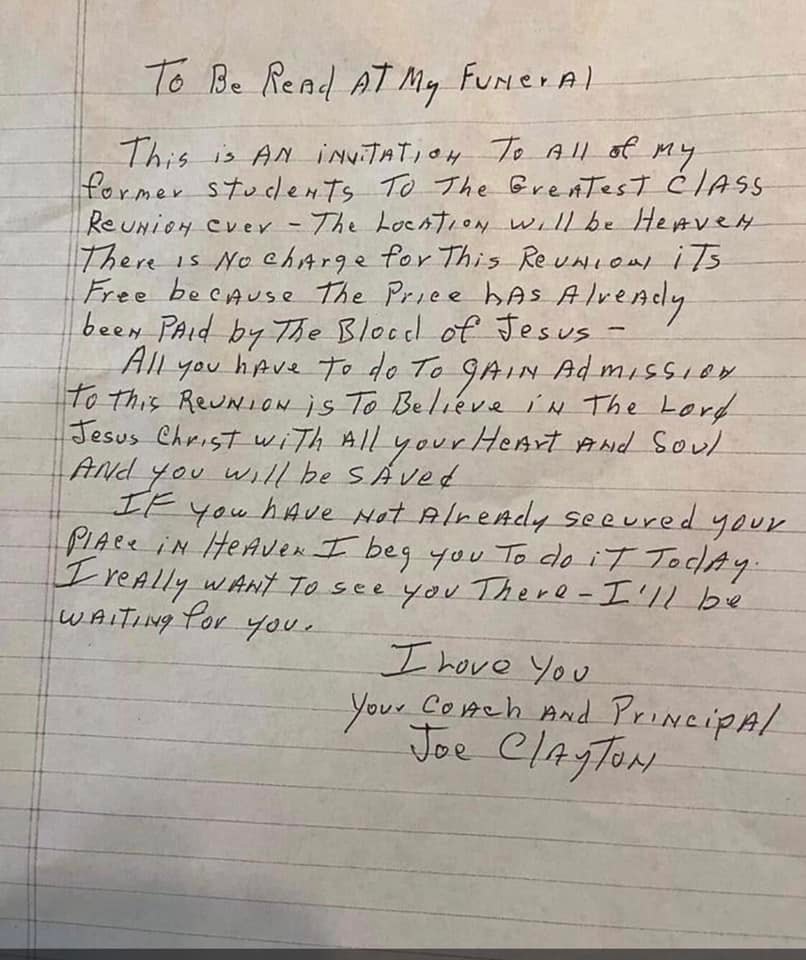 To Be Read At My Funeral
This is an invitation To All of my
former students To The Greatest Class
Reunion ever - The Location will be Heaven
There is No charge for This Reunion iTs
Free because The Price has Already
been Paid by The Blood of Jesus -
All you have to do To gain Admission
to this Reunion is To Believe in The Lord
Jesus Christ with All your Heart And Soul
And you will be saved
If you have not Already secured your
Place in Heaven I beg you To do it Today.
I really want To see you There - I'll be
waiting for you.
I Love You
Your Coach And Principal
Joe Clayton